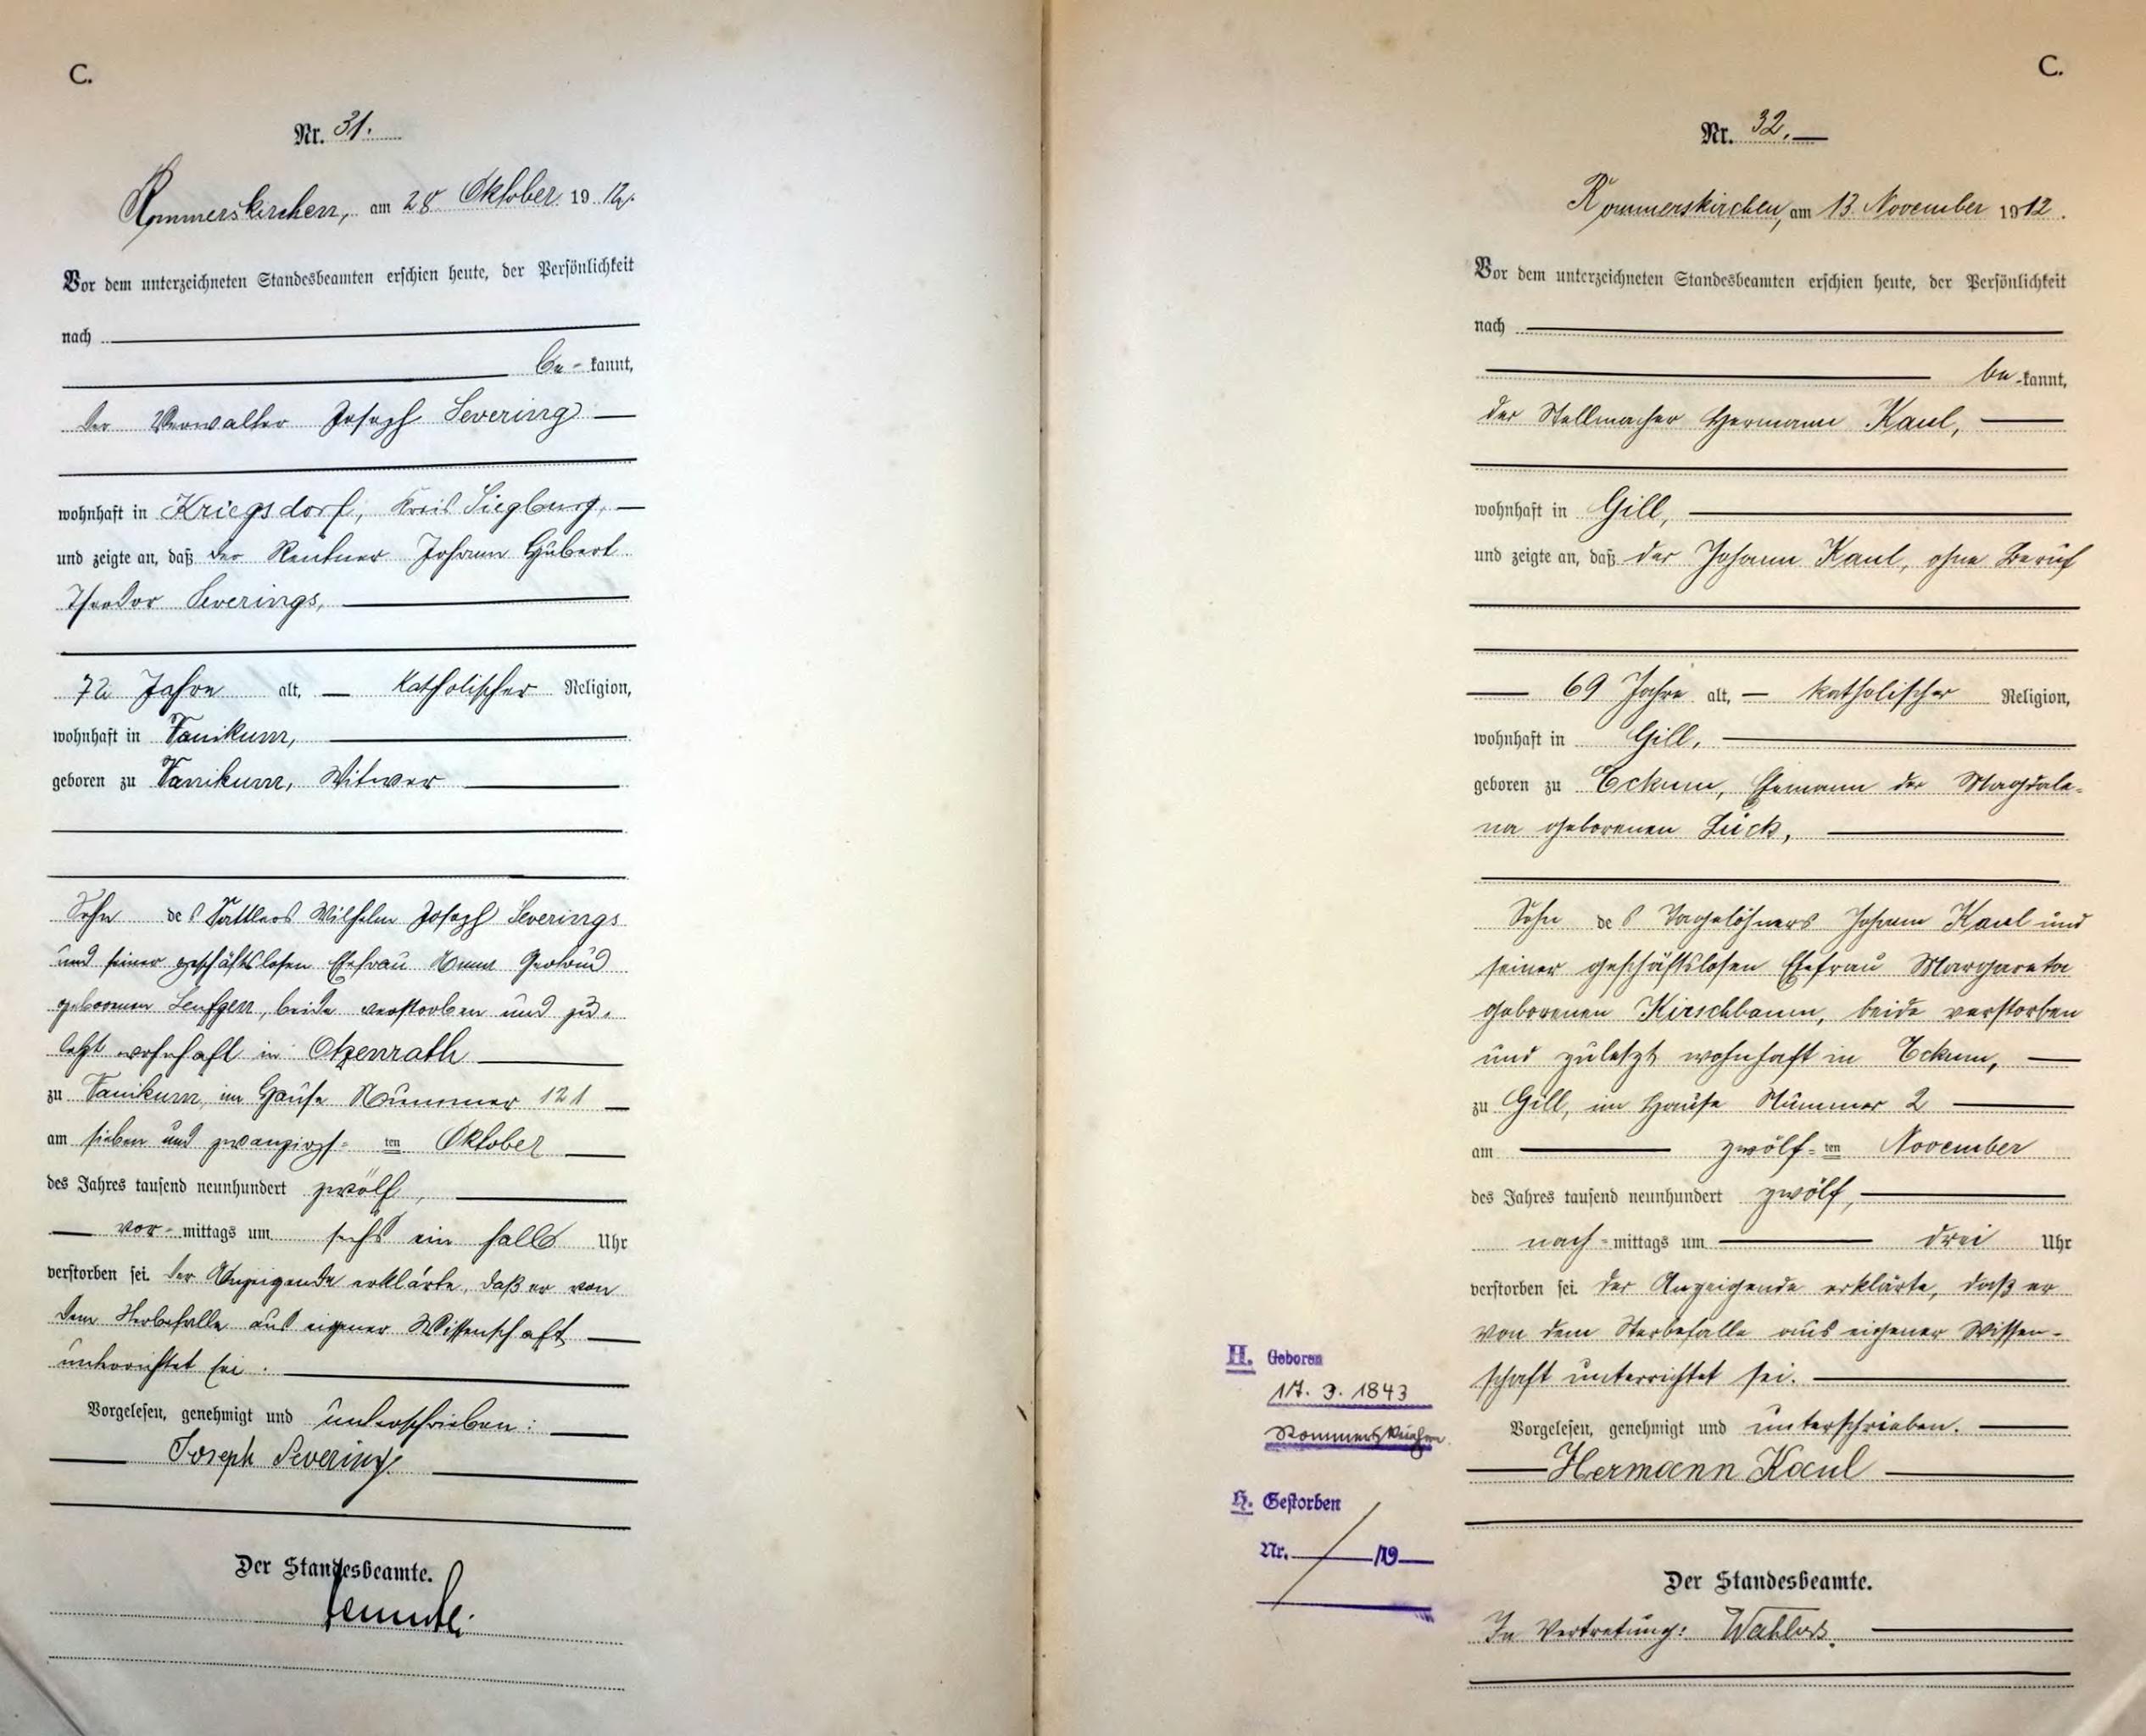 C.
Nr. 31.
Rommerskirchen, am 28 Oktober 1912.
Vor dem unterzeichneten Standesbeamten erschien heute, der Persönlichkeit
nach
be-kannt,
der Verwalter Joseph Severing
wohnhaft in Kriegsdorf, Kreis Siegburg,
und zeigte an, daß der Rentner Johann Hubert
Theodor Severings,
72 Jahre alt, katholischer Religion,
wohnhaft in Vanikum,
geboren zu Vanikum, Witwer
Sohn des Sattlers Wilhelm Joseph Severings
und seiner geschäftslosen Ehefrau Anna Gertrud
geborenen Lenfgen, beide verstorben und zu-
letzt wohnhaft in Otzenrath
zu Vanikum, im Hause Nummer 121
am sieben und zwanzigs-ten Oktober
des Jahres tausend neunhundert zwölf,
vor-mittags um sechs ein halb Uhr
verstorben sei. Der Anzeigende erklärte, daß er von
dem Sterbefalle aus eigener Wissenschaft
unterrichtet sei.
Vorgelesen, genehmigt und unterschrieben:
Joseph Severing.
Der Standesbeamte.
C.
Nr. 32.
Rommerskirchen, am 13. November 1912.
Vor dem unterzeichneten Standesbeamten erschien heute, der Persönlichkeit
nach
be-kannt,
der Stellmacher Hermann Kaul,
wohnhaft in Gill,
und zeigte an, daß der Johann Kaul, ohne Beruf
69 Jahre alt, katholischer Religion,
wohnhaft in Gill,
geboren zu Eckum, Ehemann der Magdale-
na geborenen Lück,
Sohn des Tagelöhners Johann Kaul und
seiner geschäftslosen Ehefrau Margareta
geborenen Kirschbaum, beide verstorben
und zuletzt wohnhaft in Eckum,
zu Gill, im Hause Nummer 2
am zwölf-ten November
des Jahres tausend neunhundert zwölf,
nach-mittags um drei Uhr
verstorben sei. Der Anzeigende erklärte, daß er
von dem Sterbefalle aus eigener Wissen-
schaft unterrichtet sei.
Vorgelesen, genehmigt und unterschrieben.
Hermann Kaul
Der Standesbeamte.
In Vertretung:
H. Geboren
17. 3. 1843
Rommerskirchen
H. Gestorben
Nr. /19